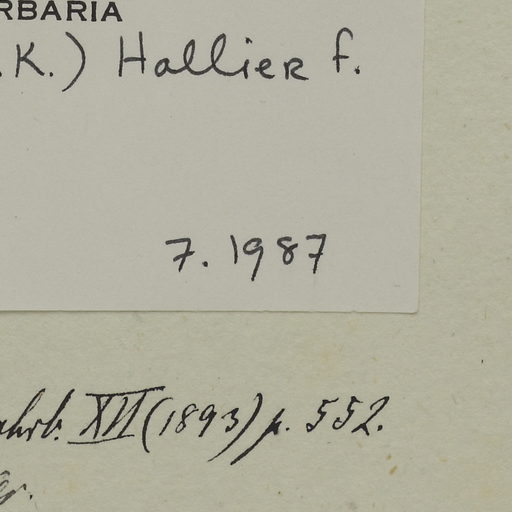 RBARIA
.K.) Hallier f.
7. 1987
ahrb. XVI (1893) p. 552.